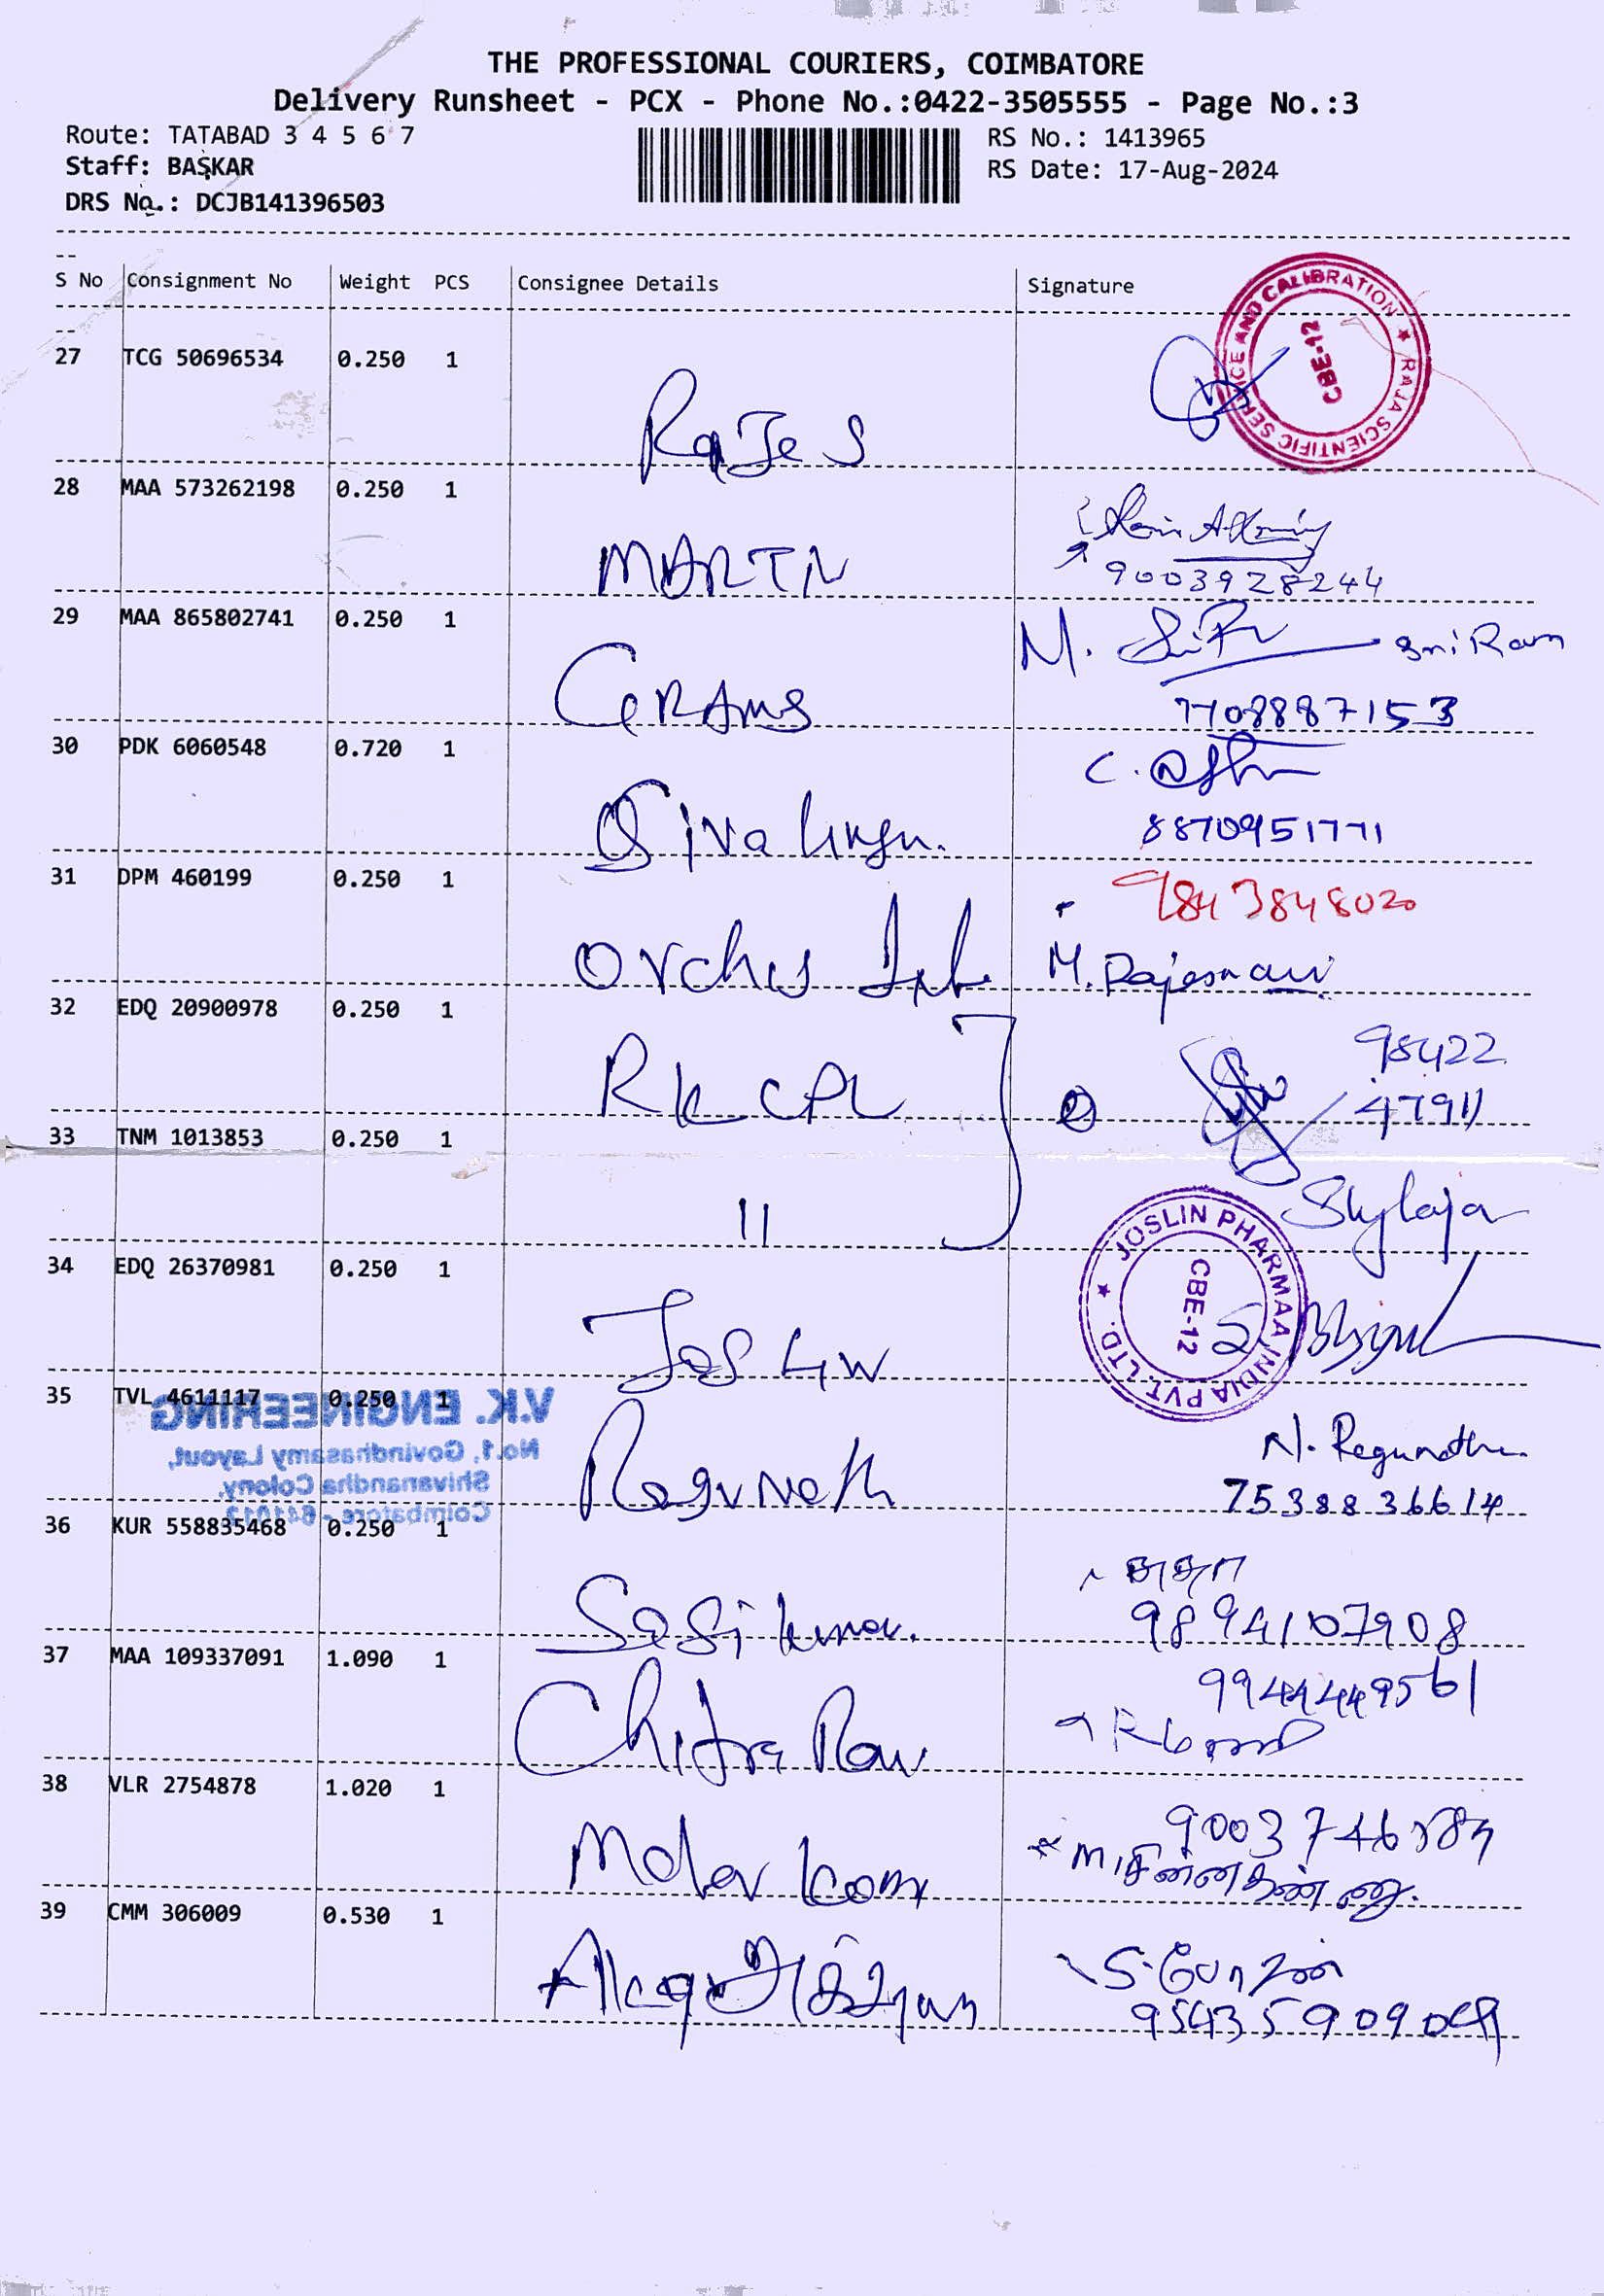 THE PROFESSIONAL COURIERS, COIMBATORE
Delivery Runsheet - PCX - Phone No.:0422-3505555 - Page No.:3
Route: TATABAD 3 4 5 6 7
RS No.: 1413965
Staff: BASKAR
RS Date: 17-Aug-2024
DRS No.: DCJB141396503
S No Consignment No Weight PCS Consignee Details Signature
27 TCG 50696534 0.250 1
RaJeS
RAJA SCIENTIFIC SERVICE AND CALIBRATION ★
CBE-12
28 MAA 573262198 0.250 1
MARTIN
9003928244
29 MAA 865802741 0.250 1
M. SriRam
7708887153
30 PDK 6060548 0.720 1
C.
8870951771
31 DPM 460199 0.250 1
9843848020
Orchis
M. Rajeswari
32 EDQ 20900978 0.250 1
RKCPL
98422
47911
33 TNM 1013853 0.250 1
11
Shylaja
34 EDQ 26370981 0.250 1
JOSLIN
JOSLIN PHARMAA INDIA PVT. LTD. ★
CBE-12
35 TVL 4611117 0.250 1
V.K. ENGINEERING
No.1, Govindhasamy Layout,
Shivanandha Colony,
Coimbatore - 641012
Ragunath
N. Regunath
7538836614
36 KUR 558835468 0.250 1
Sasikumar.
9894107908
37 MAA 109337091 1.090 1
9944449561
Chitra
38 VLR 2754878 1.020 1
9003746
39 CMM 306009 0.530 1
S.